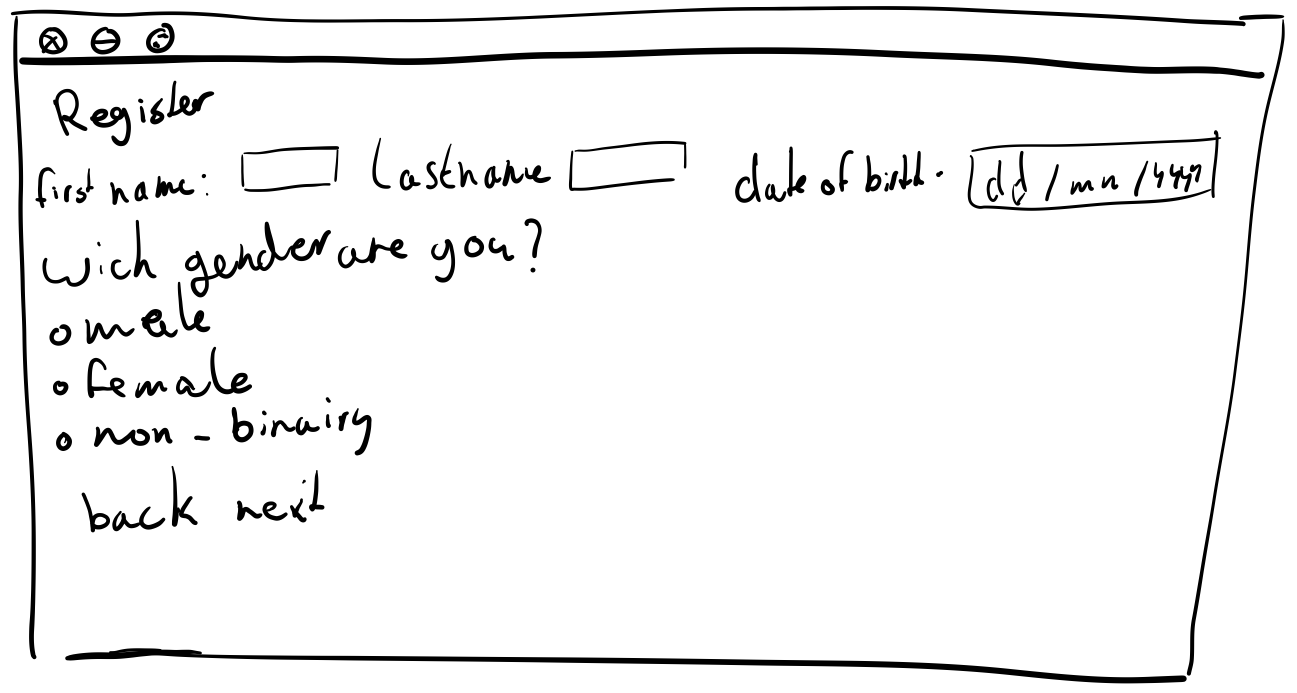 Register
first name: Lastname date of birth. dd/mn/yyyy
wich gender are you?
male
female
non-binairy
back next